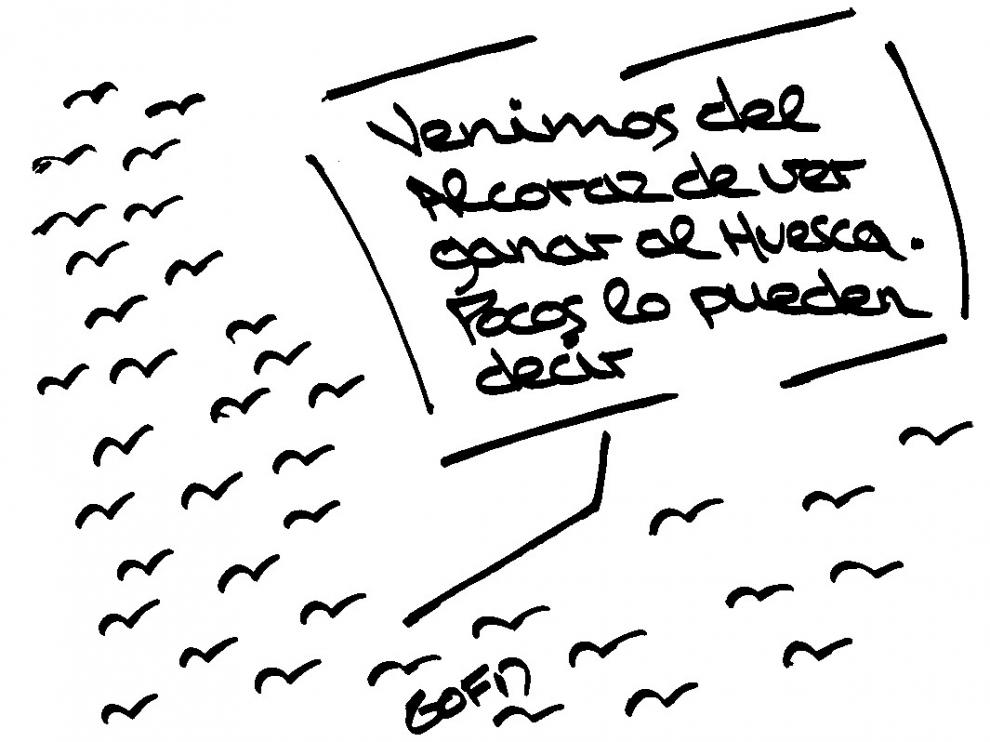 Venimos del
Alcoraz de ver
ganar al Huesca.
Pocos lo pueden
decir
GOFI